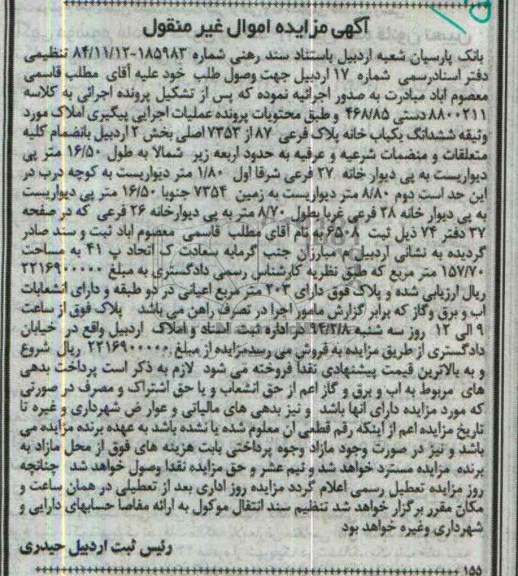 آگهی مزایده اموال غیر منقول
بانک پارسیان شعبه اردبیل باستناد سند رهنی شماره ۱۸۵۹۸۳-۸۴/۱۱/۱۲ تنظیمی
دفتر اسنادرسمی شماره ۱۷ اردبیل جهت وصول طلب خود علیه آقای مطلب قاسمی
معصوم اباد مبادرت به صدور اجرائیه نموده که پس از تشکیل پرونده اجرائی به کلاسه
۸۸۰۰۲۱۱ دستی ۴۶۸/۸۵ و طبق محتویات پرونده عملیات اجرایی پیگیری املاک مورد
وثیقه ششدانگ یکباب خانه پلاک فرعی ۸۷ از ۷۳۵۳ اصلی بخش ۲ اردبیل بانضمام کلیه
متعلقات و منضمات شرعیه و عرفیه به حدود اربعه زیر شمالا به طول ۱۶/۵۰ متر پی
دیواریست به پی دیوار خانه ۲۷ فرعی شرقا اول ۱/۸۰ متر دیواریست به کوچه درب در
این حد است دوم ۸/۸۰ متر دیواریست به زمین ۷۳۵۴ جنوبا ۱۶/۵۰ متر پی دیواریست
به پی دیوار خانه ۲۸ فرعی غربا بطول ۸/۷۰ متر به پی دیوارخانه ۲۶ فرعی که در صفحه
۳۷ دفتر ۷۴ ذیل ثبت ۶۵۰۸ به نام آقای مطلب قاسمی معصوم اباد ثبت و سند صادر
گردیده به نشانی اردبیل م مبارزان جنب گرمابه سعادت ک اتحاد پ ۴۱ به مساحت
۱۵۷/۷۰ متر مربع که طبق نظریه کارشناس رسمی دادگستری به مبلغ ۲۲۱۶۹۰۰۰۰۰
ریال ارزیابی شده و پلاک فوق دارای ۲۰۳ متر مربع اعیانی در دو طبقه و دارای انشعابات
اب و برق وگاز که برابر گزارش مامور اجرا در تصرف راهن می باشد پلاک فوق از ساعت
۹ الی ۱۲ روز سه شنبه ۹۴/۳/۸ در اداره ثبت اسناد و املاک اردبیل واقع در خیابان
دادگستری از طریق مزایده به فروش می رسدمزایده از مبلغ ۲۲۱۶۹۰۰۰۰۰ ریال شروع
و به بالاترین قیمت پیشنهادی نقدا فروخته می شود لازم به ذکر است پرداخت بدهی
های مربوط به اب و برق و گاز اعم از حق انشعاب و یا حق اشتراک و مصرف در صورتی
که مورد مزایده دارای آنها باشد و نیز بدهی های مالیاتی و عوار ض شهرداری و غیره تا
تاریخ مزایده اعم از اینکه رقم قطعی ان معلوم شده یا نشده باشد به عهده برنده مزایده می
باشد و نیز در صورت وجود مازاد وجوه پرداختی بابت هزینه های فوق از محل مازاد به
برنده مزایده مسترد خواهد شد و نیم عشر و حق مزایده نقدا وصول خواهد شد چنانچه
روز مزایده تعطیل رسمی اعلام گردد مزایده روز اداری بعد از تعطیلی در همان ساعت و
مکان مقرر برگزار خواهد شد تنظیم سند انتقال موکول به ارائه مفاصا حسابهای دارایی و
شهرداری وغیره خواهد بود
رئیس ثبت اردبیل حیدری
۱۵۵